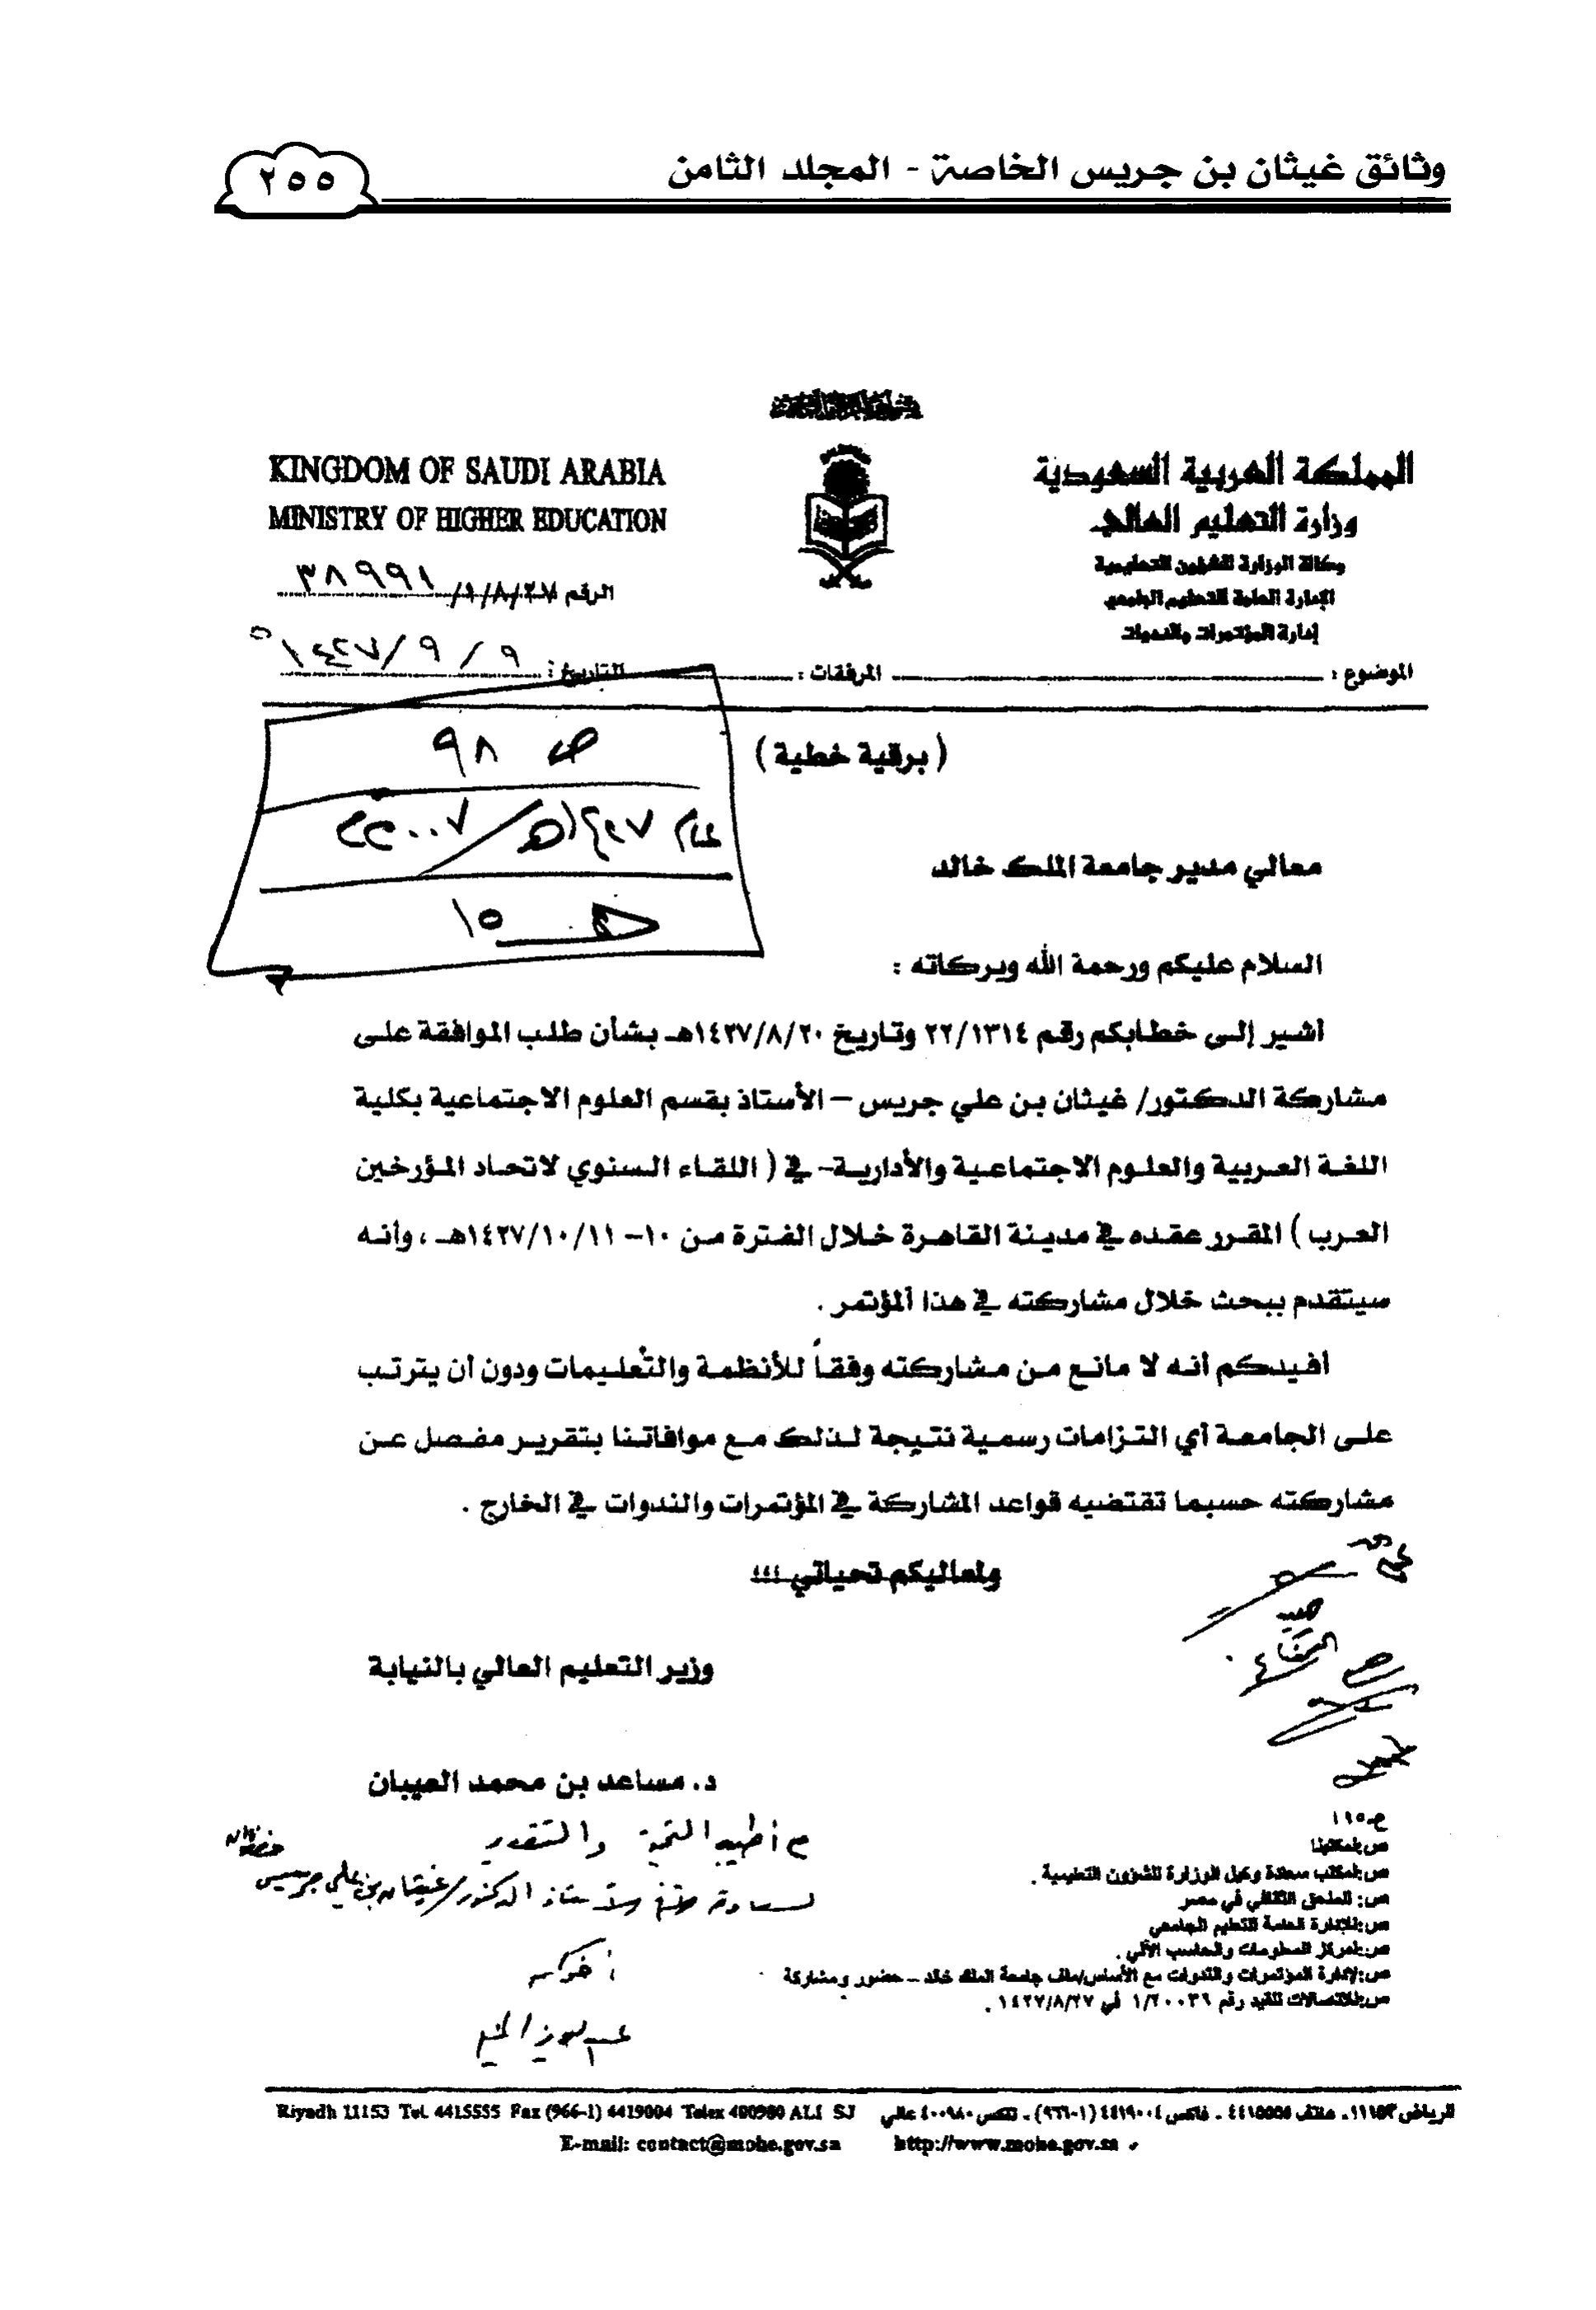 وثائق غيثان بن جريس الخاصة - المجلد الثامن
٢٥٥
المملكة العربية السعودية
وزارة التعليم العالي
وكالة الوزارة للشؤون التعليمية
الإدارة العامة للتعليم الجامعي
إدارة المؤتمرات والندوات
KINGDOM OF SAUDI ARABIA
MINISTRY OF HIGHER EDUCATION
الرقم ١/٨/٢٧/ ٣٨٩٩١
الموضوع : المرفقات : التاريخ : ٩ / ٩ / ١٤٢٧ ه
ص ٩٨
عام ١٤٢٧هـ/٢٠٠٧م
حـ ١٥
( برقية خطية )
معالي مدير جامعة الملك خالد
السلام عليكم ورحمة الله وبركاته :
أشير إلى خطابكم رقم ٢٢/١٣١٤ وتاريخ ١٤٢٧/٨/٢٠هـ بشأن طلب الموافقة على
مشاركة الدكتور/ غيثان بن علي جريس – الأستاذ بقسم العلوم الاجتماعية بكلية
اللغة العربية والعلوم الاجتماعية والأدارية- في ( اللقاء السنوي لاتحاد المؤرخين
العرب ) المقرر عقده في مدينة القاهرة خلال الفترة من ١٠- ١٤٢٧/١٠/١١هـ ، وأنه
سيتقدم ببحث خلال مشاركته في هذا المؤتمر .
أفيدكم أنه لا مانع من مشاركته وفقاً للأنظمة والتعليمات ودون أن يترتب
على الجامعة أي التزامات رسمية نتيجة لذلك مع موافاتنا بتقرير مفصل عن
مشاركته حسبما تقتضيه قواعد المشاركة في المؤتمرات والندوات في الخارج .
ولمعاليكم تحياتي ،،،
وزير التعليم العالي بالنيابة
د. مساعد بن محمد العيبان
م أطيب التحية والتقدير
لسعادة الأستاذ الدكتور/غيثان بن علي جريس حفظه الله
أخوكم
ص:لمكتبنا
ص:لمكتب سعادة وكيل الوزارة للشؤون التعليمية .
ص: الملحق الثقافي في مصر
ص:للإدارة العامة للتعليم الجامعي
ص:لمركز المعلومات والحاسب الآلي .
ص:لإدارة المؤتمرات والندوات مع الأساس/ملف جامعة الملك خالد – حضور ومشاركة
ص:للاتصالات للقيد رقم ١/٢٠٠٣٦ في ١٤٢٧/٨/٢٧ .
الرياض ١١١٥٣ـ هاتف ٤٤١٥٥٥٥ ـ فاكس ٤٤١٩٠٠٤ (١-٩٦٦) ـ تلكس ٤٠٠٩٨٠ عالي
Riyadh 11153 Tel. 4415555 Fax (966-1) 4419004 Telex 400980 ALI SJ
E-mail: contact@mohe.gov.sa http://www.mohe.gov.sa